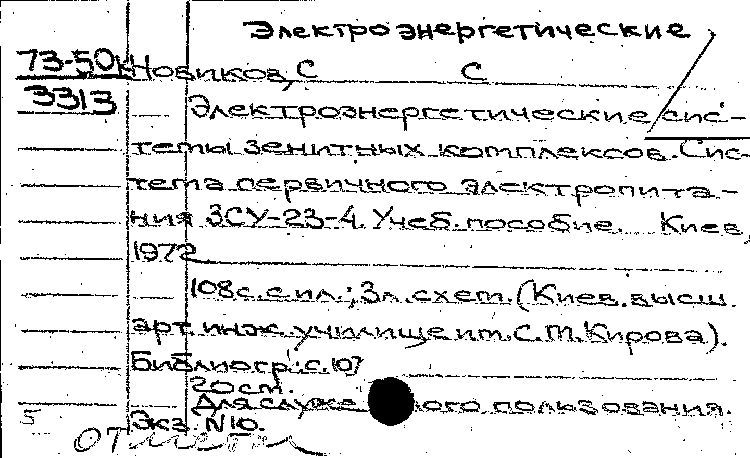 Электроэнергетические
73-50к Новиков, С С
3313
Электроэнергетические сис-
темы зенитных комплексов. Сис-
тема первичного электропита-
ния ЗСУ-23-4. Учеб. пособие. Киев,
1972
108с. с ил.; 3л. схем. (Киев. высш.
арт. инж. училище им. С.М. Кирова).
Библиогр.: с. 107
20 см.
Для служе ного пользования.
Экз. N10.
5